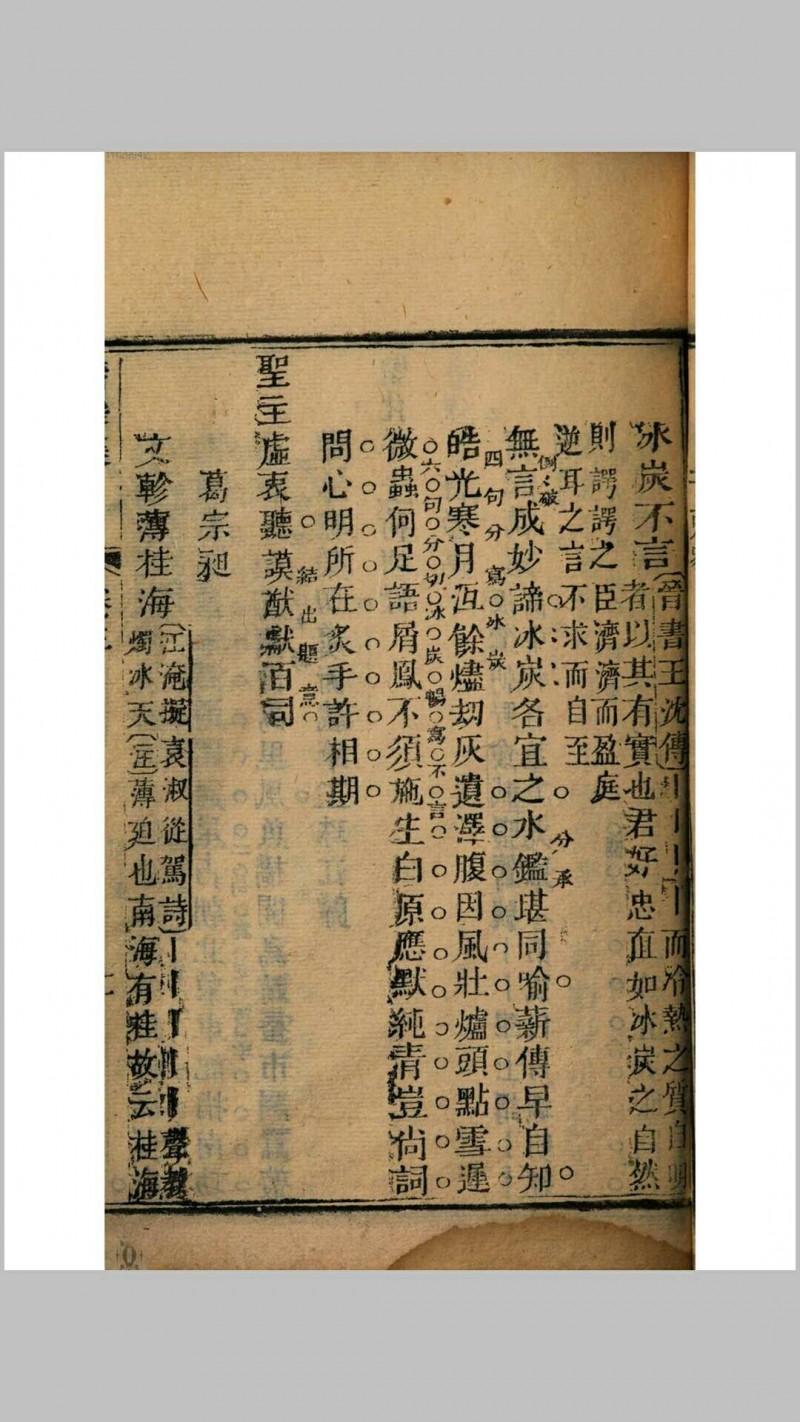 冰炭不言
(晉書王沈傳)〡〡〡〡而冷熱之質自明
者以其有實也君好忠直如冰炭之自然
則諤諤之臣濟濟而盈庭
逆耳之言不求而自至
無言成妙諦冰炭各宜之水鑑堪同喻薪傳早自知
倒破
分承
皓光寒月沍餘燼刼灰遺澤腹因風壯爐頭點雪遲
四句分寫冰炭
微蟲何足語屑鳳不須施生白原應默純青豈尙詞
六句分切冰炭暢寫不言
問心明所在炙手許相期
聖主虛衷聽謨猷獻百司
結出題意
葛宗昶
文軫薄桂海
(江淹擬袁淑從駕詩)〡〡〡〡〡聲敎
燭冰天(注)薄迫也南海有桂故云桂海